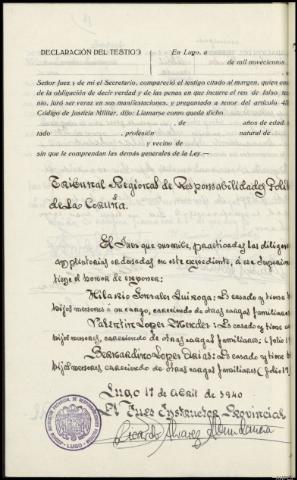 DECLARACIÓN DEL TESTIGO
En Lugo, a
de mil novecientos
Señor Juez y de mí el Secretario, compareció el testigo citado al margen, quien en
de la obligación de decir verdad y de las penas en que incurre el reo de falso te
nio, juró ser veraz en sus manifestaciones, y preguntado a tenor del artículo 48
Código de Justicia Militar, dijo: Llamarse como queda dicho
, de años de edad,
tado , profesión natural de
y vecino de
sin que le comprendan las demás generales de la Ley.—
Tribunal Regional de Responsabilidades Polí
de La Coruña.
El Juez que suscribe, practicadas las diligen
ampliatorias ordenadas en este expediente, a ese Superior
tiene el honor de exponer:
Hilario Gonzalez Quiroga: Es casado y tiene
hijos menores a su cargo, careciendo de otras cargas familiares
Valentin Lopez Mendez: Es casado y tiene
hijos menores, careciendo de otras cargas familiares; (folio 1
Bernardino Lopez Arias: Es casado y tiene
hijos menores careciendo de otras cargas familiares (folio 1
Lugo 17 de Abril de 1940
El Juez Instructor Provincial
Ricardo Alvarez
LUGO